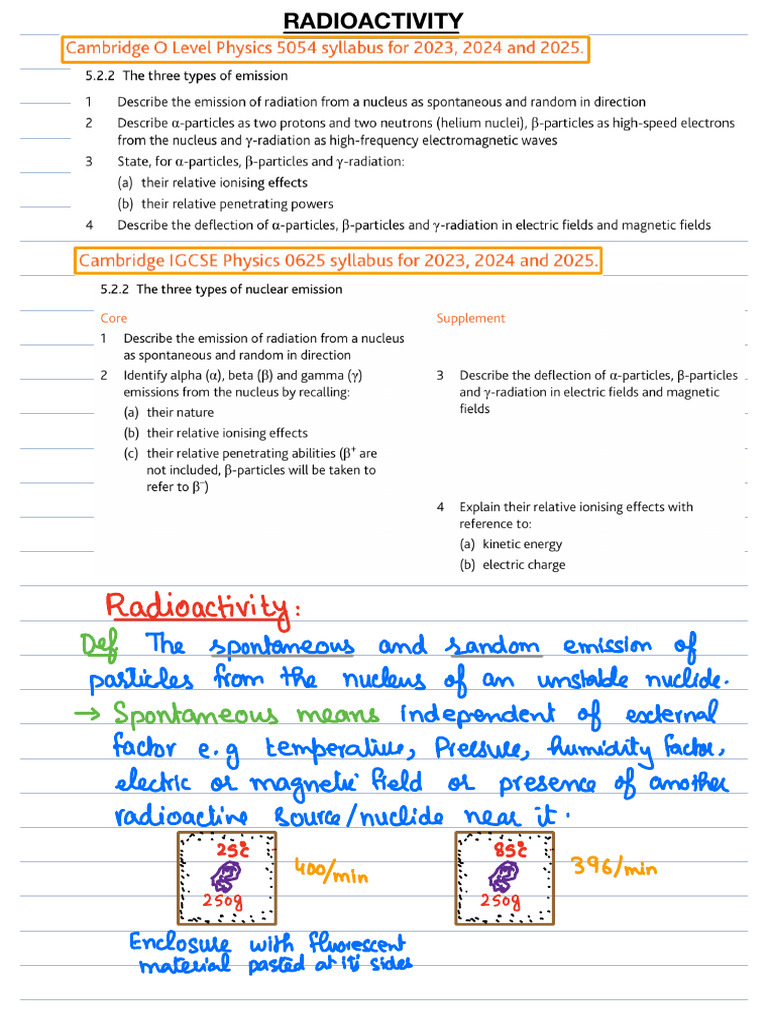 RADIOACTIVITY
Cambridge O Level Physics 5054 syllabus for 2023, 2024 and 2025.
5.2.2 The three types of emission
1 Describe the emission of radiation from a nucleus as spontaneous and random in direction
2 Describe α-particles as two protons and two neutrons (helium nuclei), β-particles as high-speed electrons
from the nucleus and γ-radiation as high-frequency electromagnetic waves
3 State, for α-particles, β-particles and γ-radiation:
(a) their relative ionising effects
(b) their relative penetrating powers
4 Describe the deflection of α-particles, β-particles and γ-radiation in electric fields and magnetic fields
Cambridge IGCSE Physics 0625 syllabus for 2023, 2024 and 2025.
5.2.2 The three types of nuclear emission
Core
1 Describe the emission of radiation from a nucleus
as spontaneous and random in direction
2 Identify alpha (α), beta (β) and gamma (γ)
emissions from the nucleus by recalling:
(a) their nature
(b) their relative ionising effects
(c) their relative penetrating abilities (β⁺ are
not included, β-particles will be taken to
refer to β⁻)
Supplement
3 Describe the deflection of α-particles, β-particles
and γ-radiation in electric fields and magnetic
fields
4 Explain their relative ionising effects with
reference to:
(a) kinetic energy
(b) electric charge
Radioactivity:
Def The spontaneous and random emission of
particles from the nucleus of an unstable nuclide.
→ Spontaneous means independent of external
factor e.g temperature, Pressure, humidity factor,
electric or magnetic field or presence of another
radioactive source/nuclide near it.
25°C
250g
400/min
85°C
250g
396/min
Enclosure with fluorescent
material pasted at its sides